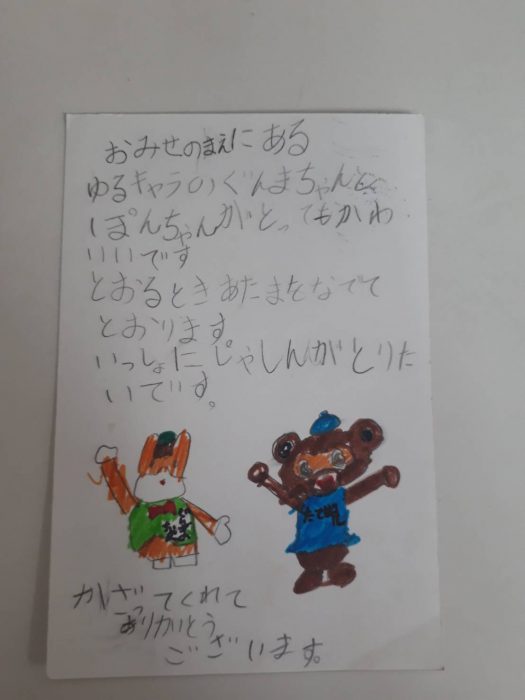 おみせのまえにある
ゆるキャラのぐんまちゃんと
ぽんちゃんがとってもかわ
いいです
とおるときあたまをなでて
とおります
いっしょにしゃしんがとりた
いです。
かざってくれて
ありがとう
ございます。